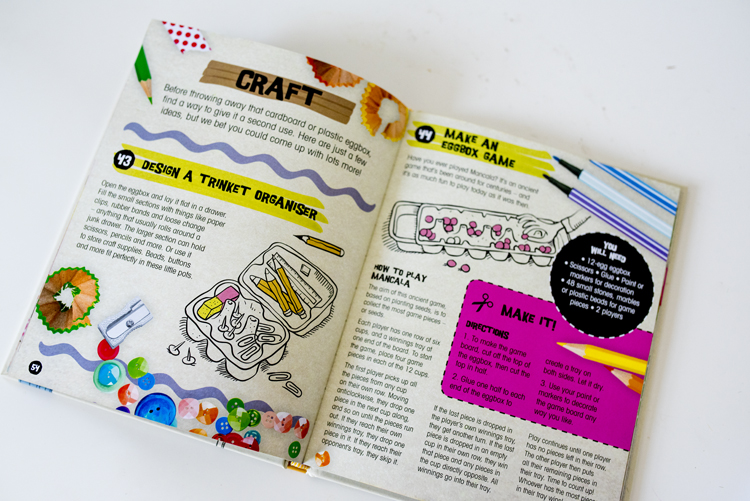 CRAFT
Before throwing away that cardboard or plastic eggbox,
find a way to give it a second use. Here are just a few
ideas, but we bet you could come up with lots more!
43 DESIGN A TRINKET ORGANISER
Open the eggbox and lay it flat in a drawer.
Fill the small sections with things like paper
clips, rubber bands and loose change
– anything that usually rolls around a
junk drawer. The larger section can hold
scissors, pencils and more. Or use it
to store craft supplies. Beads, buttons
and more fit perfectly in these little pots.
54
44 MAKE AN
EGGBOX GAME
Have you ever played Mancala? It's an ancient
game that's been around for centuries – and
it's as much fun to play today as it was then.
YOU
WILL NEED
• 12-egg eggbox
• Scissors • Glue • Paint or
markers for decoration
• 48 small stones, marbles
or plastic beads for game
pieces • 2 players
HOW TO PLAY
MANCALA
The aim of this ancient game,
based on planting seeds, is to
collect the most game pieces –
or seeds.
Each player has one row of six
cups, and a winnings tray at
one end of the board. To start
the game, place four game
pieces in each of the 12 cups.
The first player picks up all
the pieces from any cup
on their own row. Moving
anticlockwise, they drop one
piece in the next cup along,
and so on until the pieces run
out. If they reach their own
winnings tray, they drop one
piece in it. If they reach their
opponent's tray, they skip it.
MAKE IT!
DIRECTIONS
1. To make the game
board, cut off the top of
the eggbox, then cut the
top in half.
2. Glue one half to each
end of the eggbox to
create a tray on
both sides. Let it dry.
3. Use your paint or
markers to decorate
the game board any
way you like.
If the last piece is dropped in
the player's own winnings tray,
they get another turn. If the last
piece is dropped in an empty
cup in their own row, they win
that piece and any pieces in
the cup directly opposite. All
winnings go into their tray.
Play continues until one player
has no pieces left in their row.
The other player then puts
all their remaining pieces in
their tray. Time to count up!
Whoever has the most pieces
in their tray wins